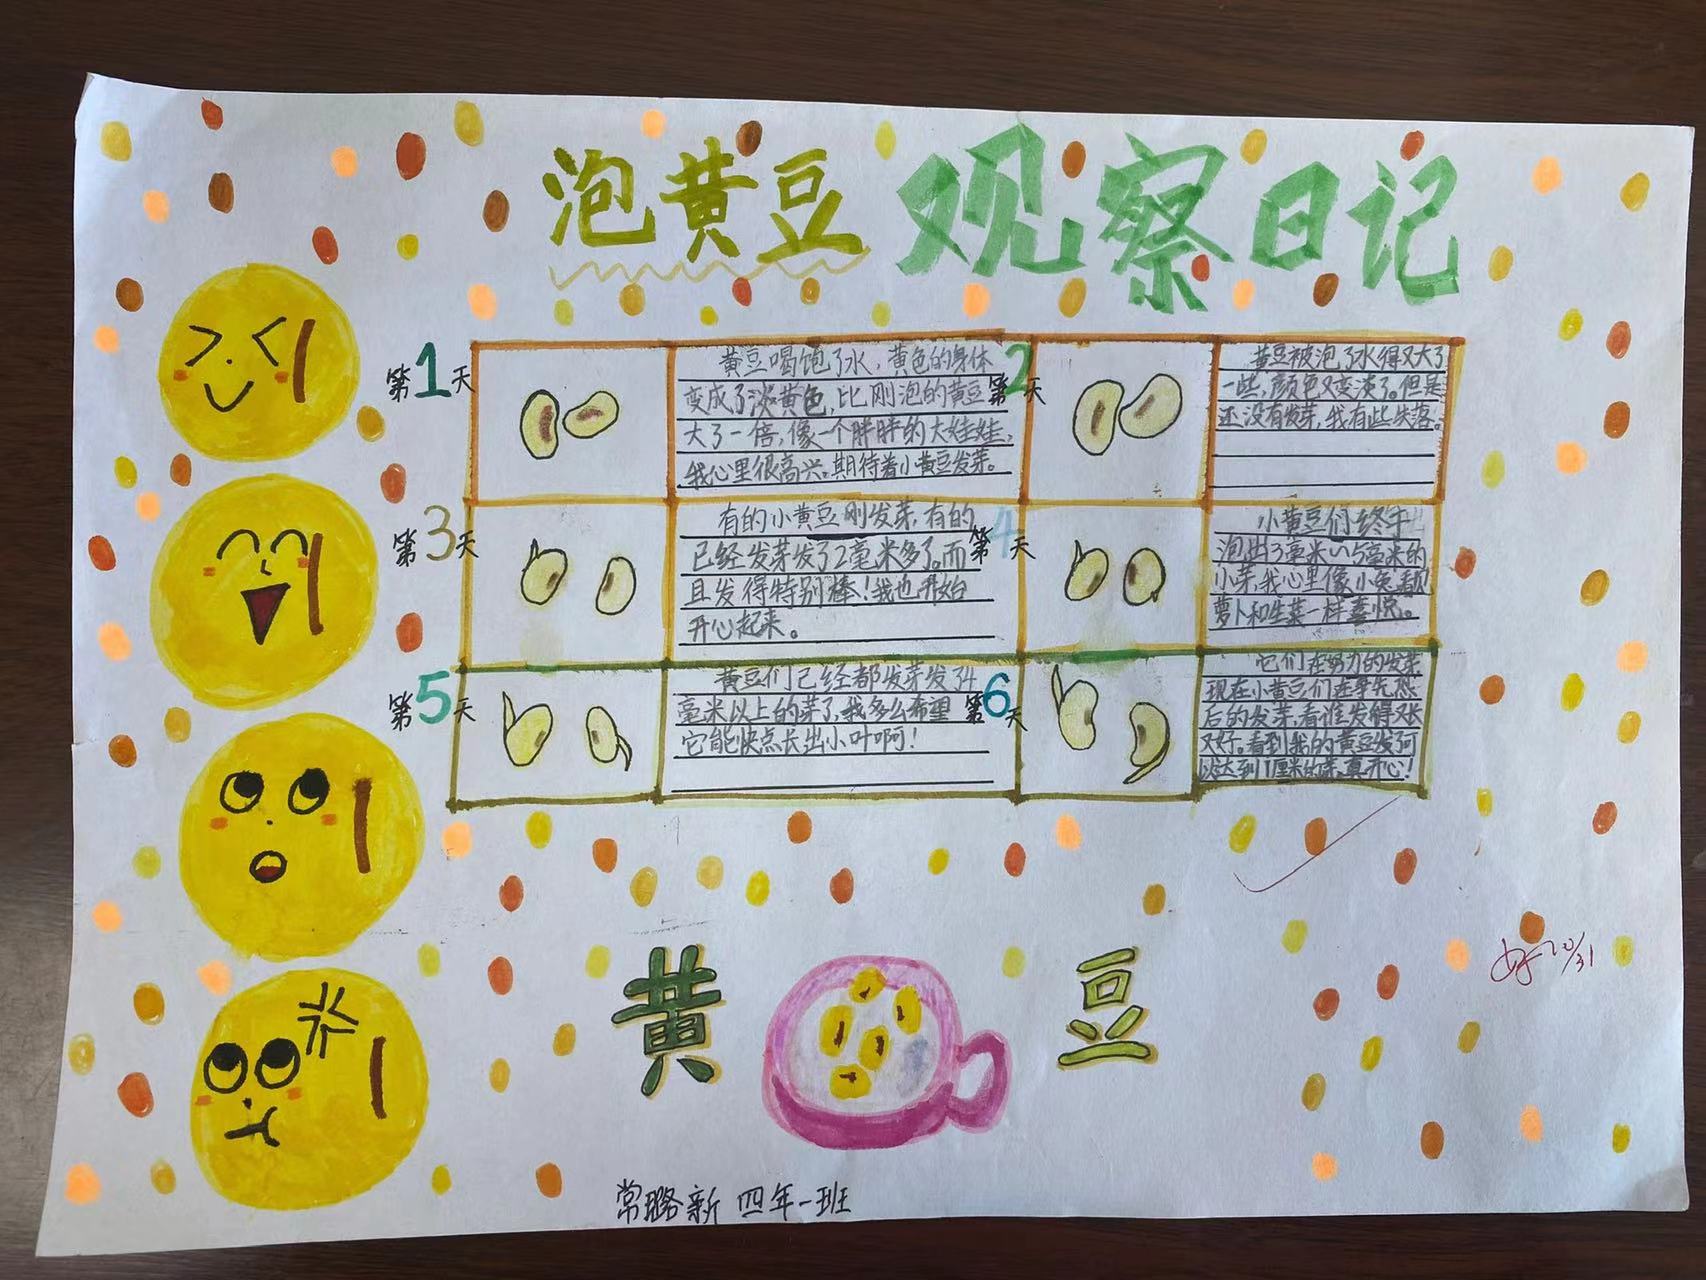 泡黄豆 观察日记
第1天
黄豆喝饱了水，黄色的身体
变成了淡黄色，比刚泡的黄豆
大了一倍，像一个胖胖的大娃娃，
我心里很高兴。期待着小黄豆发芽。
第2天
黄豆被泡了水得又大了
一些，颜色又变淡了。但是
还没有发芽，我有些失落。
第3天
有的小黄豆刚发芽，有的
已经发芽发了2毫米多了。而
且发得特别棒！我也开始
开心起来。
第4天
小黄豆们终于
泡出3毫米～5毫米的
小芽，我心里像小兔看见
萝卜和生菜一样喜悦。
第5天
黄豆们已经都发芽发了4
毫米以上的芽了，我多么希望
它能快点长出小叶啊！
第6天
它们在努力的发芽
现在小黄豆们在争先恐
后的发芽，看谁发得又长
又好。看到我的黄豆发了可
以达到1厘米的芽，真开心！
黄豆
好 10/31
常璐新 四年一班